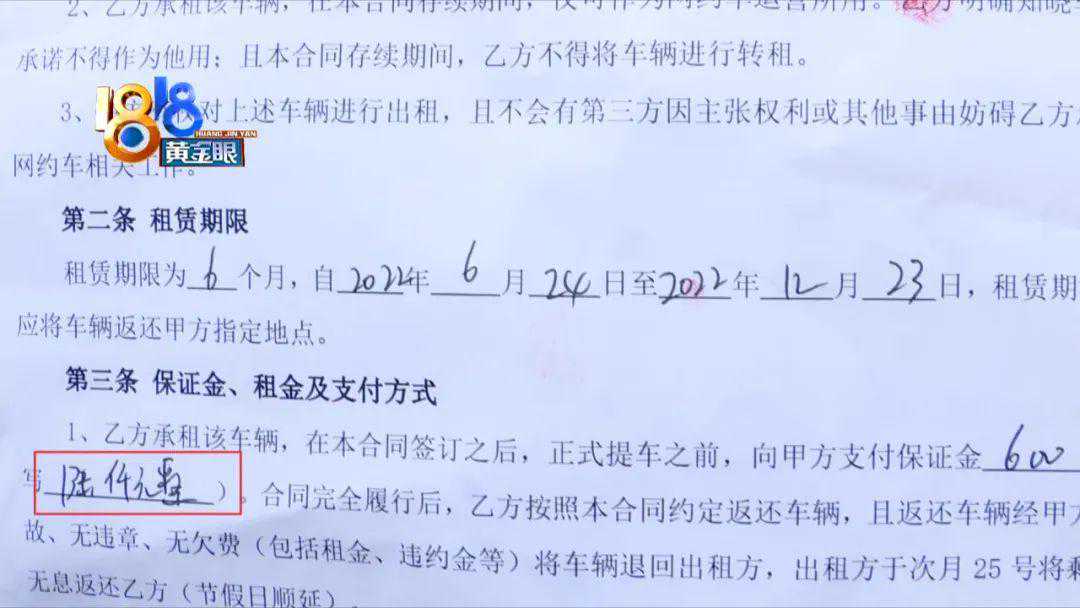 2、乙方承租该车辆，在本合同存续期间，仅可作为网约车运营所用。乙方明确知晓
承诺不得作为他用；且本合同存续期间，乙方不得将车辆进行转租。
3、对上述车辆进行出租，且不会有第三方因主张权利或其他事由妨碍乙方
1818
HUANG JIN YAN
黄金眼
网约车相关工作。
第二条 租赁期限
租赁期限为 6 个月，自 2022年 6 月 24 日至2022 年 12 月 23 日，租赁期
应将车辆返还甲方指定地点。
第三条 保证金、租金及支付方式
1、乙方承租该车辆，在本合同签订之后，正式提车之前，向甲方支付保证金 600
写 陆仟元整 ）。合同完全履行后，乙方按照本合同约定返还车辆，且返还车辆经甲方
故、无违章、无欠费（包括租金、违约金等）将车辆退回出租方，出租方于次月 25 号将剩
无息返还乙方（节假日顺延）。